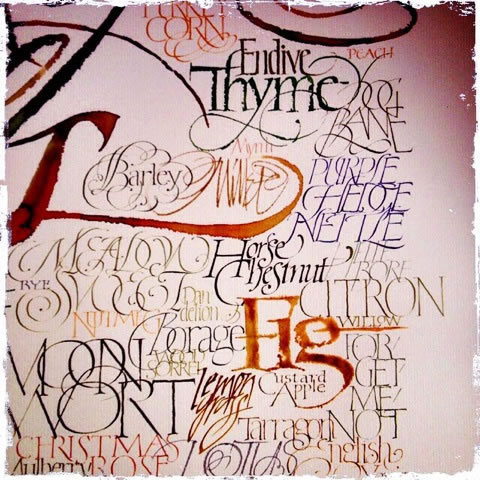 TURNET
CORN
Endive
PEACH
Thyme
DOG
BANE
Myrrh
Barley
PURPLE
HEDGE
NETTLE
MEADOW
Horse
Chestnut
RYE
SWEET
Dan
delion
CITRON
NUTMEG
Borage
Fig
WILLOW
MOON
WORT
WOOD
SORREL
Lemon
grass
Custard
Apple
FOR
GET
ME
NOT
Tarragon
CHRISTMAS
ROSE
Mulberry
LOTUS
English